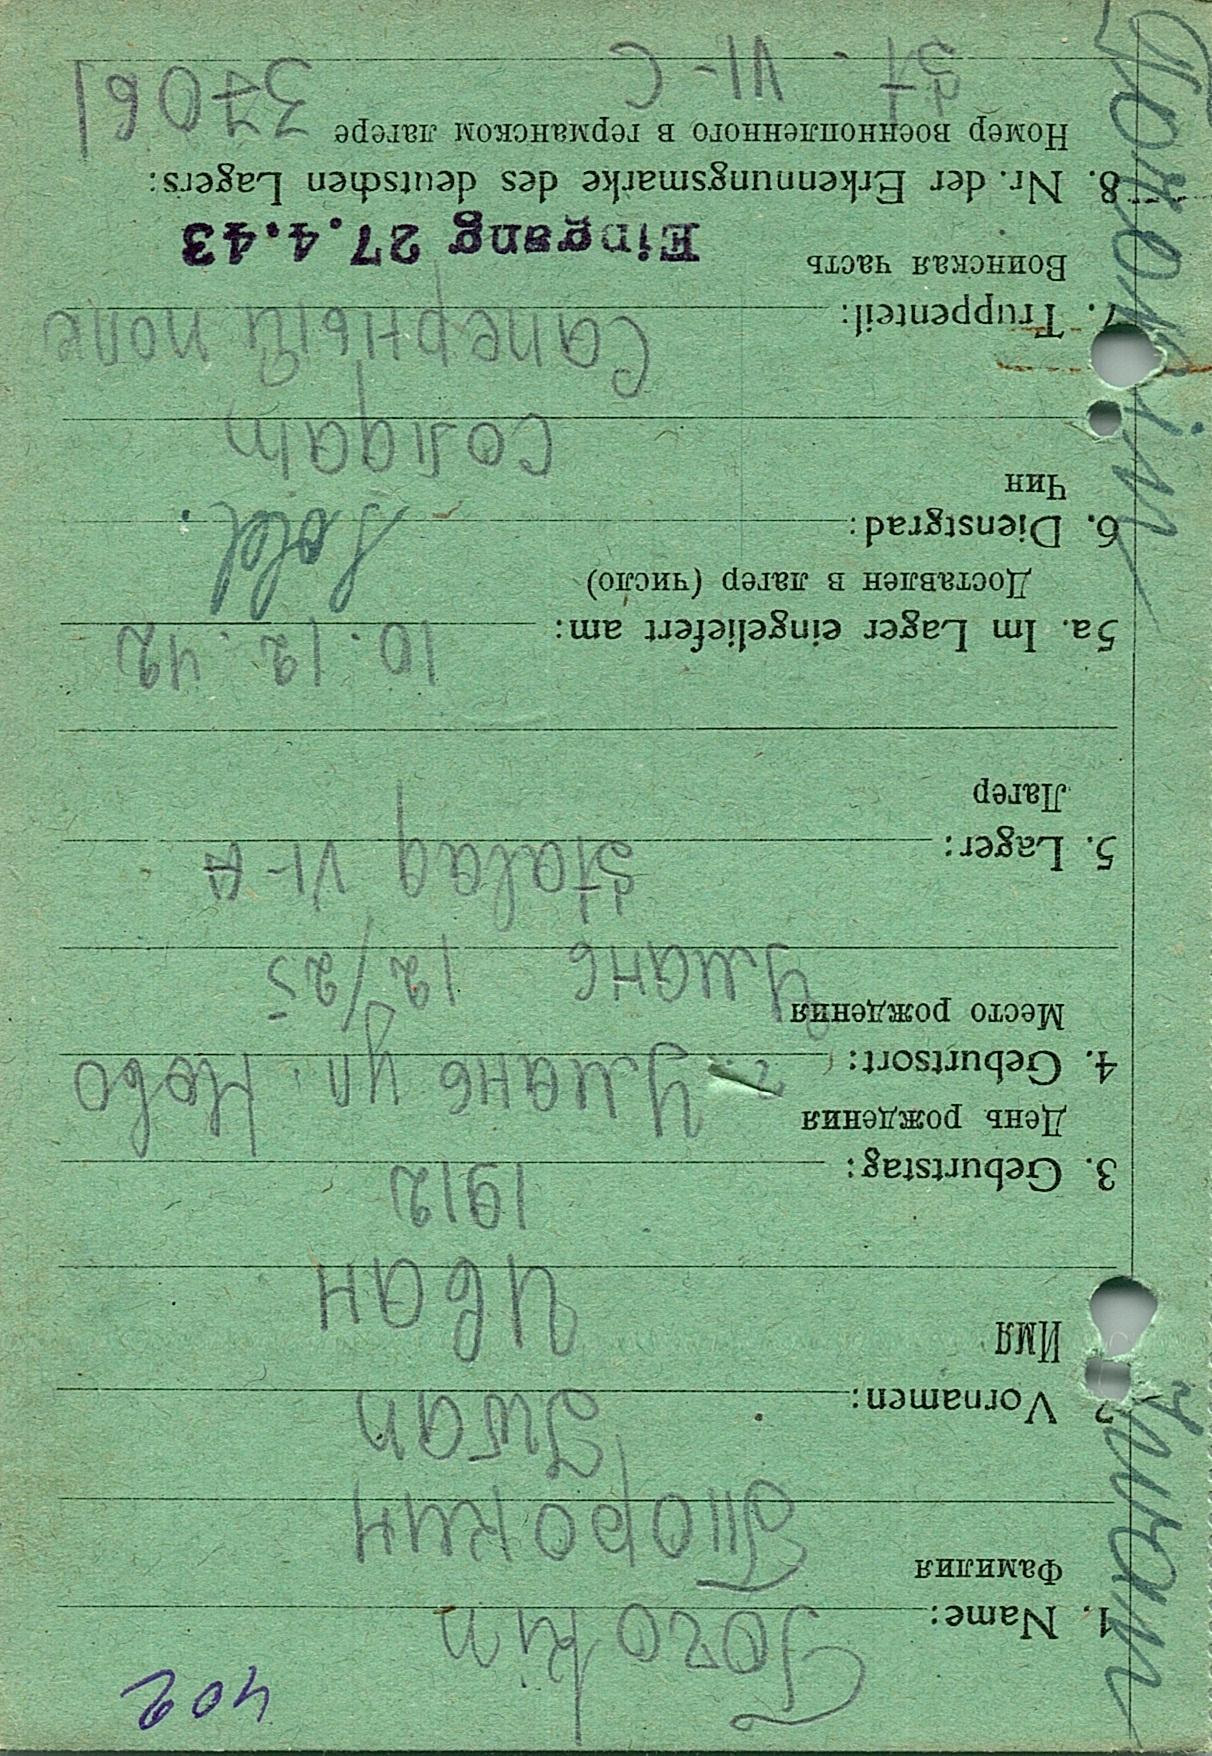 402
1. Name: Torokin
Фамилия Торокин
2. Vornamen: Iwan
Имя Иван
3. Geburtstag: 1912
День рождения
4. Geburtsort: г. Умань ул. Ново
Место рождения Умань 12/25
5. Lager: Stalag VI-A
Лагер
5a. Im Lager eingeliefert am: 10.12.42
Доставлен в лагер (число)
6. Dienstgrad: Sold.
Чин солдат
7. Truppenteil: Саперный полк
Воинская часть Eingang 27.4.43
8. Nr. der Erkennungsmarke des deutschen Lagers:
Номер военнопленного в германском лагере 37061
VI-C
Torokin
Iwan